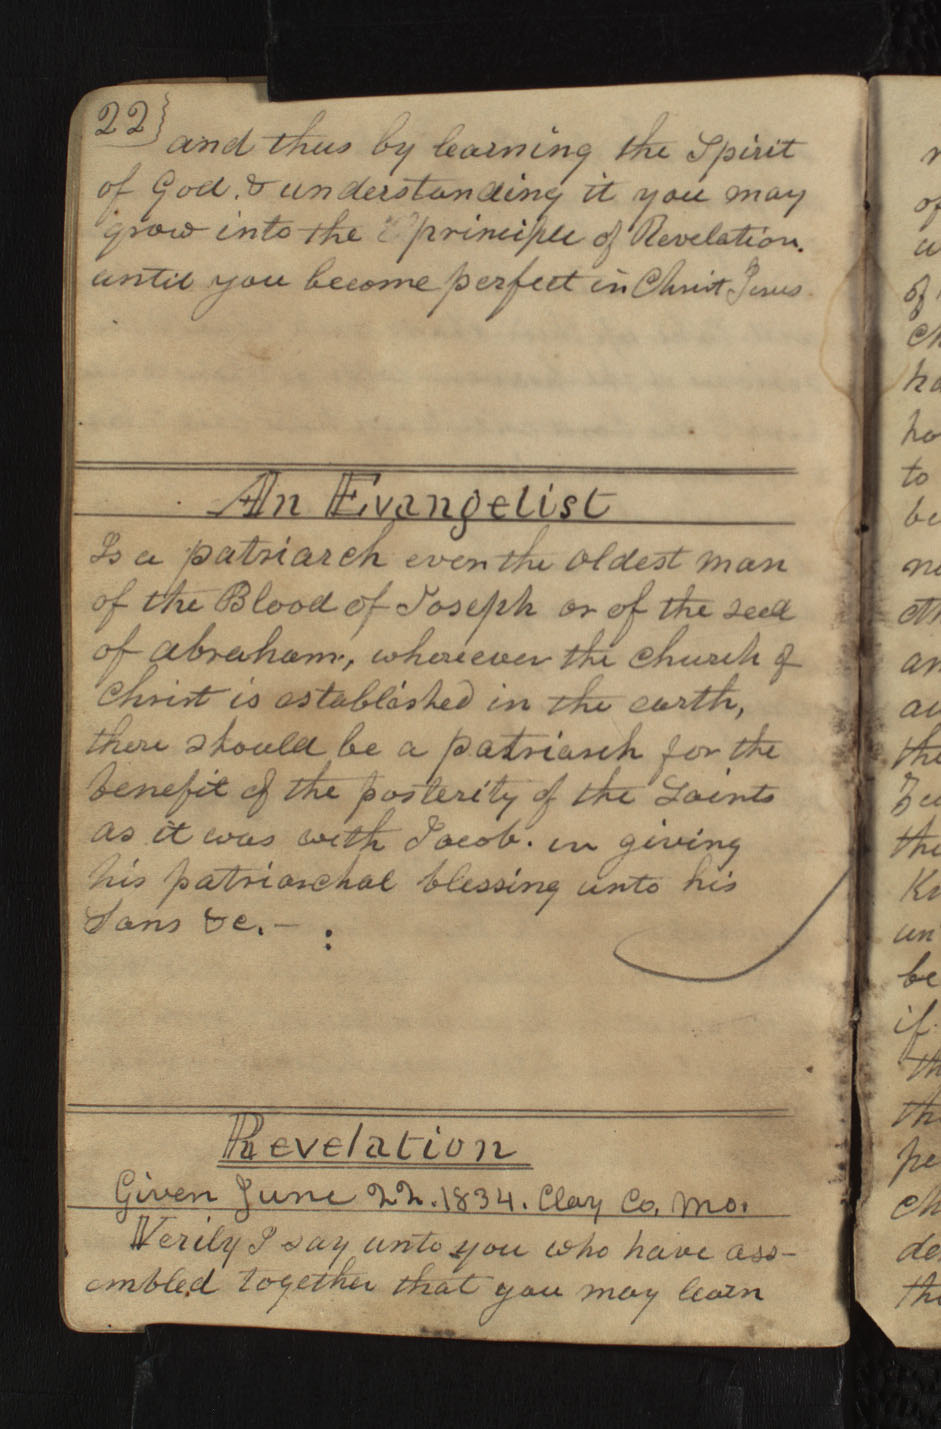 22}
and thus by learning the Spirit
of God. & understanding it you may
grow into the principle of Revelation.
until you become perfect in Christ Jesus.
An Evangelist
Is a patriarch even the oldest man
of the Blood of Joseph or of the seed
of abraham, whereever the church of
Christ is established in the earth,
there should be a patriarch for the
benefit of the posterity of the Saints
as it was with Jacob. in giving
his patriarchal blessing unto his
Sons &c. – :
Revelation
Given June 22. 1834. Clay Co. Mo.
Verily I say unto you who have ass-
embled together that you may learn